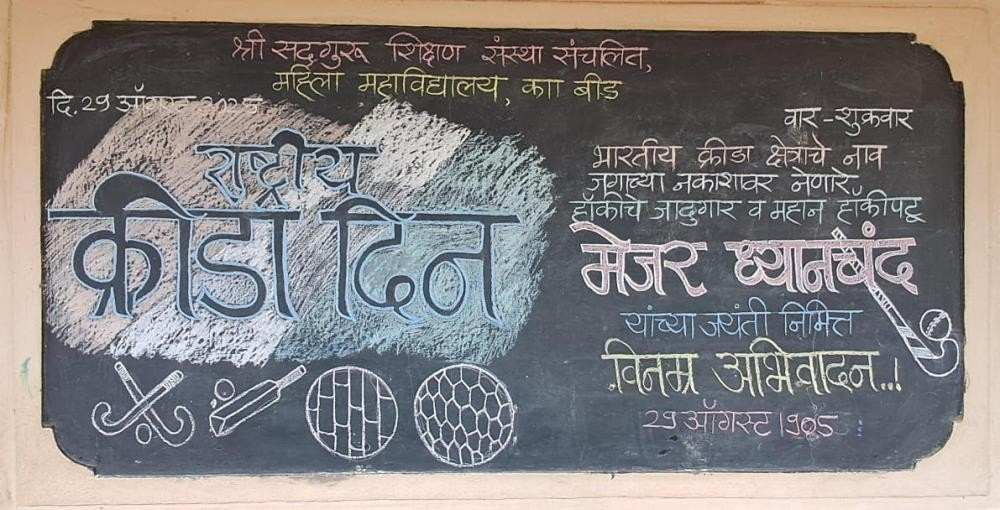 श्री सद्गुरू शिक्षण संस्था संचलित,
महिला महाविद्यालय, का बीड
दि. २९ ऑगस्ट २०२५
वार - शुक्रवार
राष्ट्रीय
क्रीडा दिन
भारतीय क्रीडा क्षेत्राचे नाव
जगाच्या नकाशावर नेणारे
हॉकीचे जादुगार व महान हॉकीपटू
मेजर ध्यानचंद
यांच्या जयंती निमित्त
विनम्र अभिवादन...!
२९ ऑगस्ट १९०५